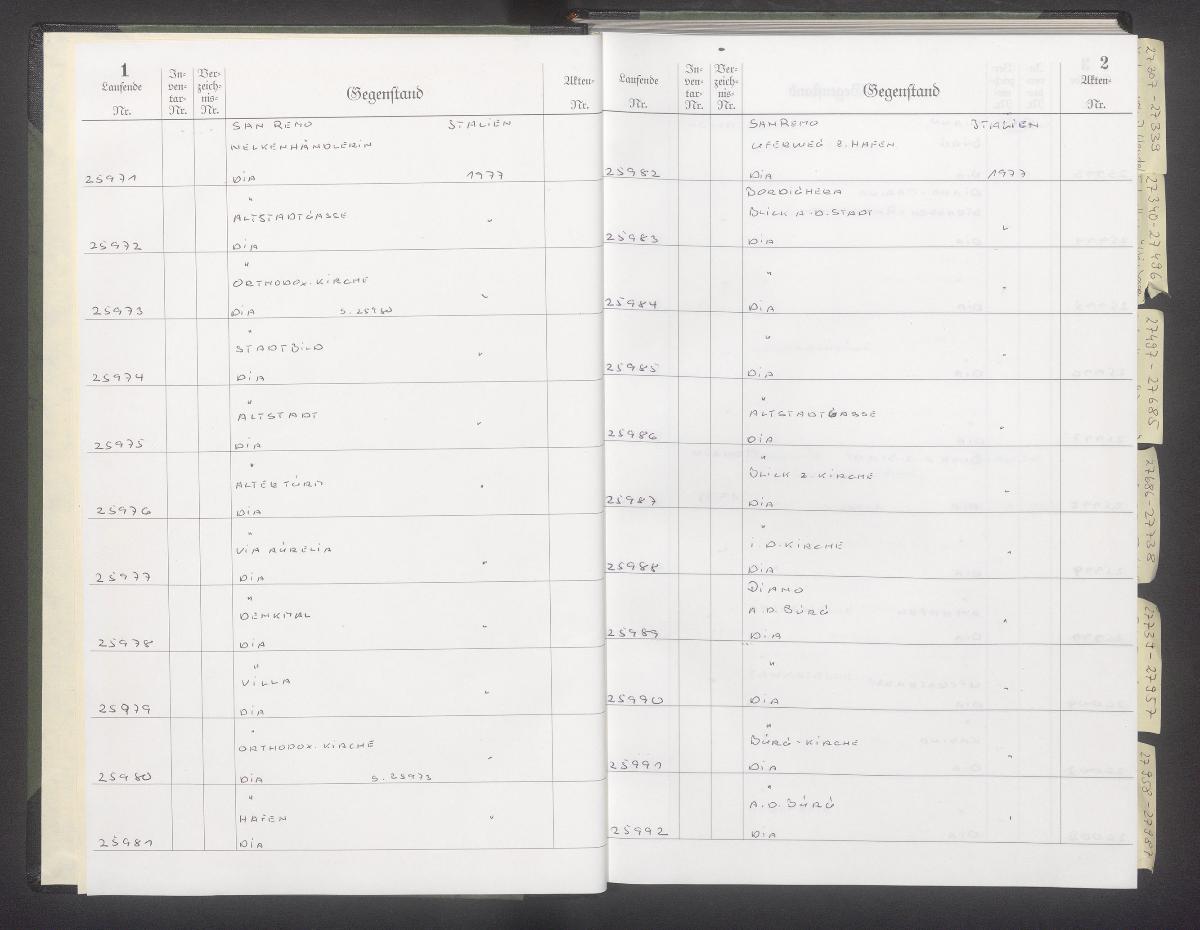 1
Laufende
Nr.
In-
ven-
tar-
Nr.
Ver-
zeich-
nis-
Nr.
Gegenstand
Akten-
Nr.
SAN REMO ITALIEN
NELKENHÄNDLERIN
25971 DIA 1977
"
ALTSTADTGASSE "
25972 DIA
"
ORTHODOX. KIRCHE "
25973 DIA S. 25980
"
STADTBILD "
25974 DIA
"
ALTSTADT "
25975 DIA
"
ALTER TURM "
25976 DIA
"
VIA AURELIA "
25977 DIA
"
DENKMAL "
25978 DIA
"
VILLA "
25979 DIA
"
ORTHODOX. KIRCHE "
25980 DIA S. 25973
"
HAFEN "
25981 DIA
2
Laufende
Nr.
In-
ven-
tar-
Nr.
Ver-
zeich-
nis-
Nr.
Gegenstand
Akten-
Nr.
SAN REMO ITALIEN
UFERWEG Z. HAFEN
25982 DIA 1977
BORDIGHERA
BLICK A. D. STADT "
25983 DIA
" "
25984 DIA
" "
25985 DIA
"
ALTSTADTGASSE "
25986 DIA
"
BLICK Z. KIRCHE "
25987 DIA
"
I. D. KIRCHE "
25988 DIA
DIANO
A. D. BURG "
25989 DIA
" "
25990 DIA
"
BURG-KIRCHE "
25991 DIA
"
A. D. BURG "
25992 DIA
27307-27339
27340-27496
27497-27685
27686-27738
27739-27957
27958-27987